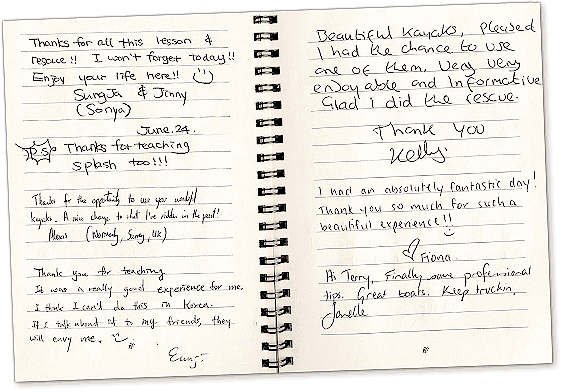 Thanks for all this lesson &
rescue!! I won't forget today!!
Enjoy your life here!!
SungJa & Jinny
(Sonya)
June.24.
P.S Thanks for teaching
splash too!!!
Thanks for the opportunity to use your wonderful
kayaks. A nice change to what I've ridden in the past!
Alexis (Normandy, Surrey, UK)
Thank you for teaching.
It was a really good experience for me.
I think I can't do this in Korea.
If I talk about it to my friends, they
will envy me.
Beautiful Kayaks, Pleased
I had the chance to use
one of them. Very very
enjoyable and Informative
Glad I did the rescue.
Thank You
Kelly.
I had an absolutely fantastic day!
Thank you so much for such a
beautiful experience!!
Fiona
Hi Terry, Finally some professional
tips. Great boats. Keep truckin,
Janelle